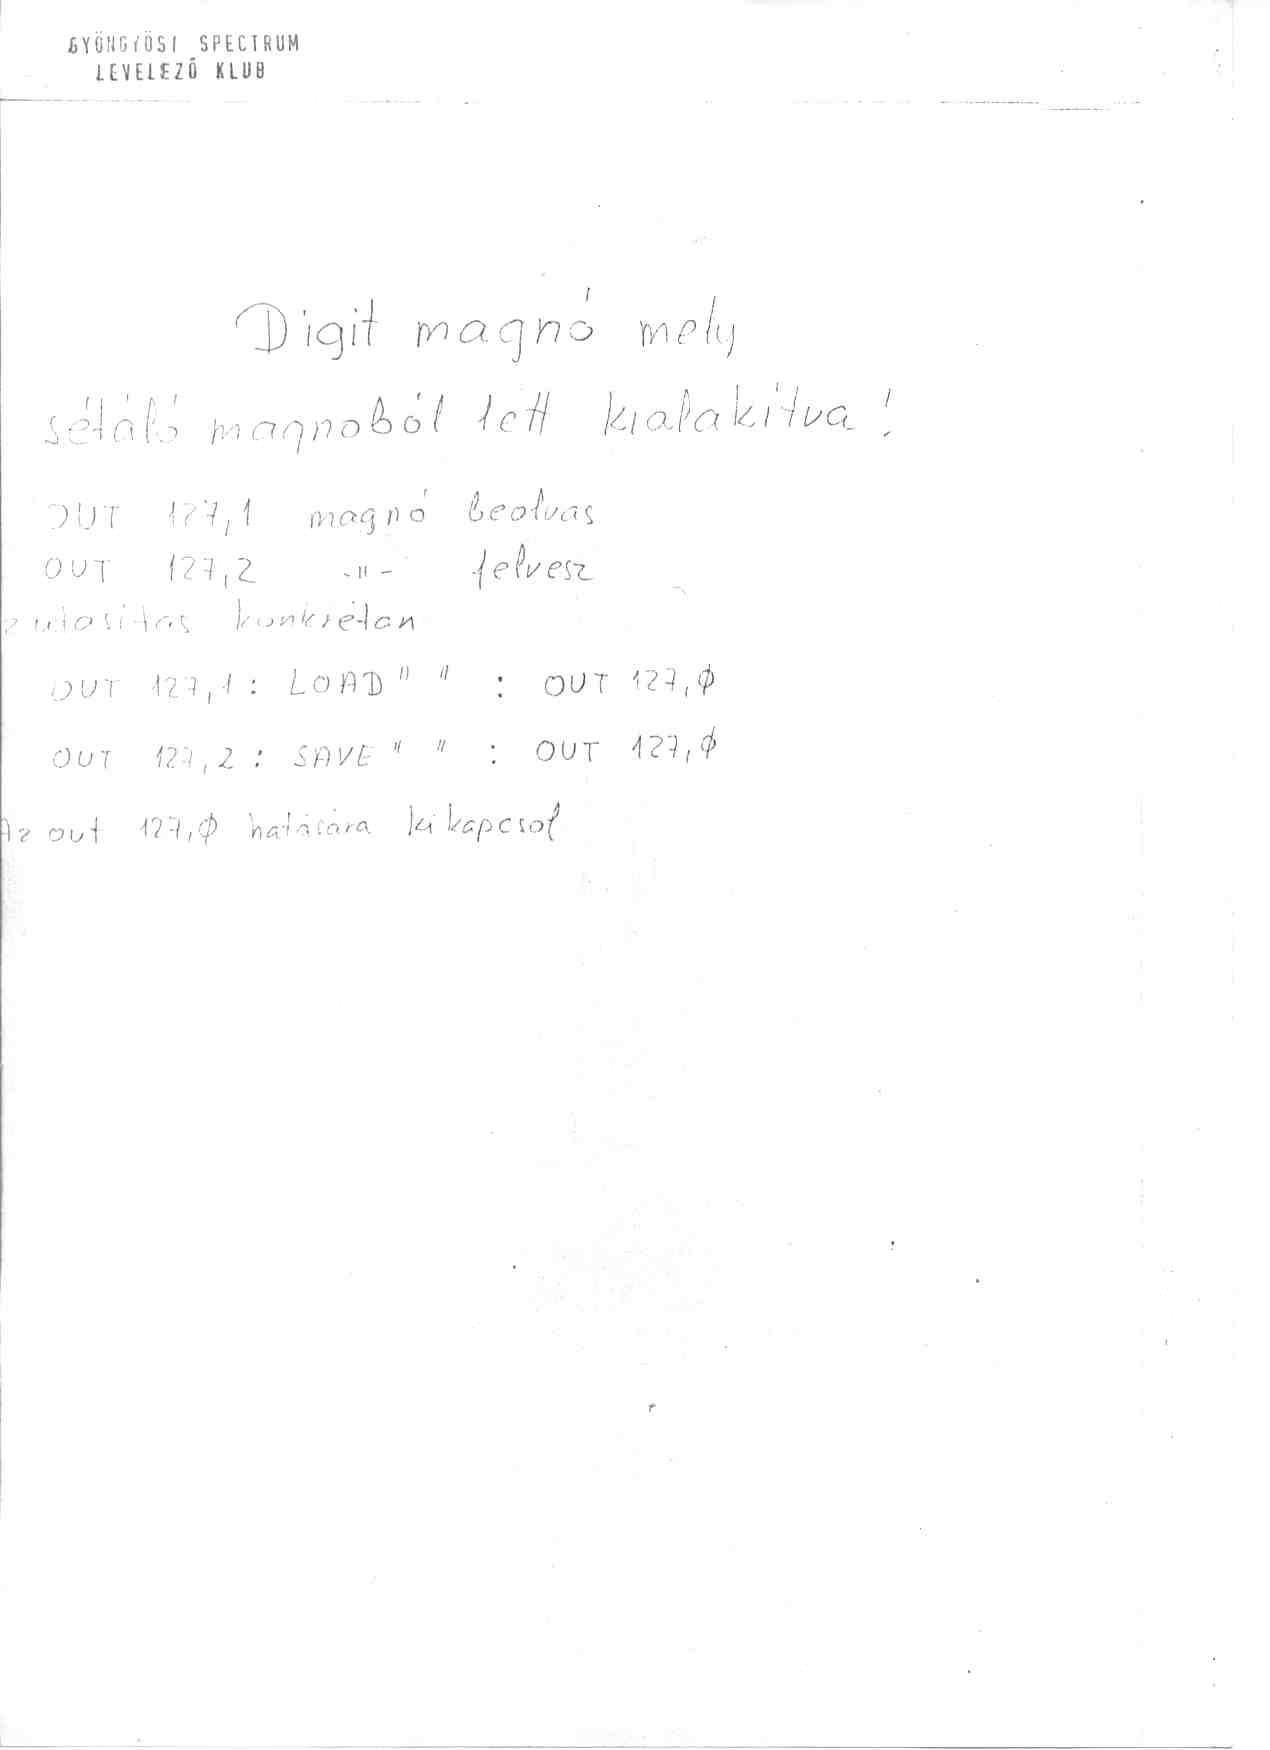 GYÖNGYÖSI SPECTRUM
LEVELEZŐ KLUB
Digit magnó mely
sétáló magnoból lett kialakítva!
OUT 127,1 magnó beolvas
OUT 127,2 -"- felvesz
z utasitás konkrétan
OUT 127,1 : LOAD " " : OUT 127,0
OUT 127,2 : SAVE " " : OUT 127,0
Az out 127,0 hatására kikapcsol